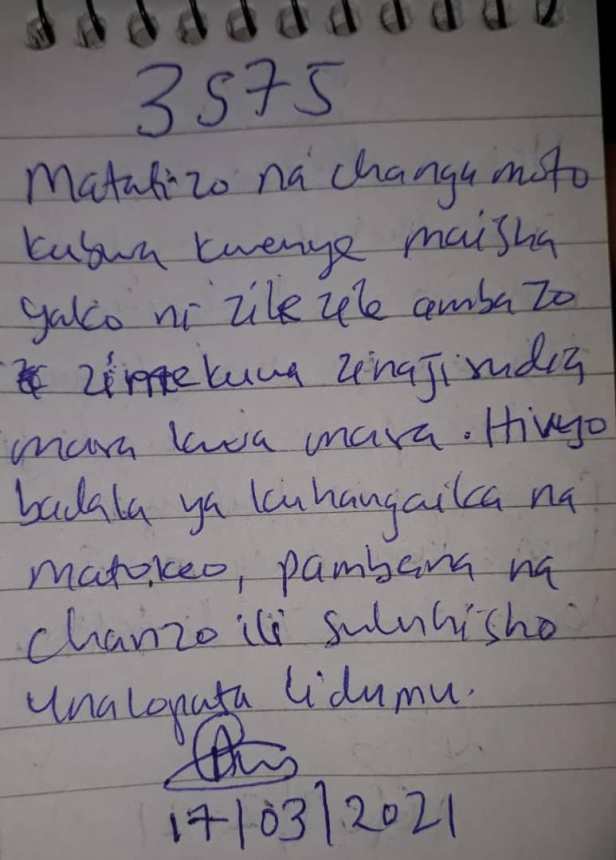 3575
Matatizo na changamoto
kubwa kwenye maisha
yako ni zile zile ambazo
zimekuwa zinajirudia
mara kwa mara. Hivyo
badala ya kuhangaika na
matokeo, pambana na
chanzo ili suluhisho
unalopata lidumu.
17/03/2021